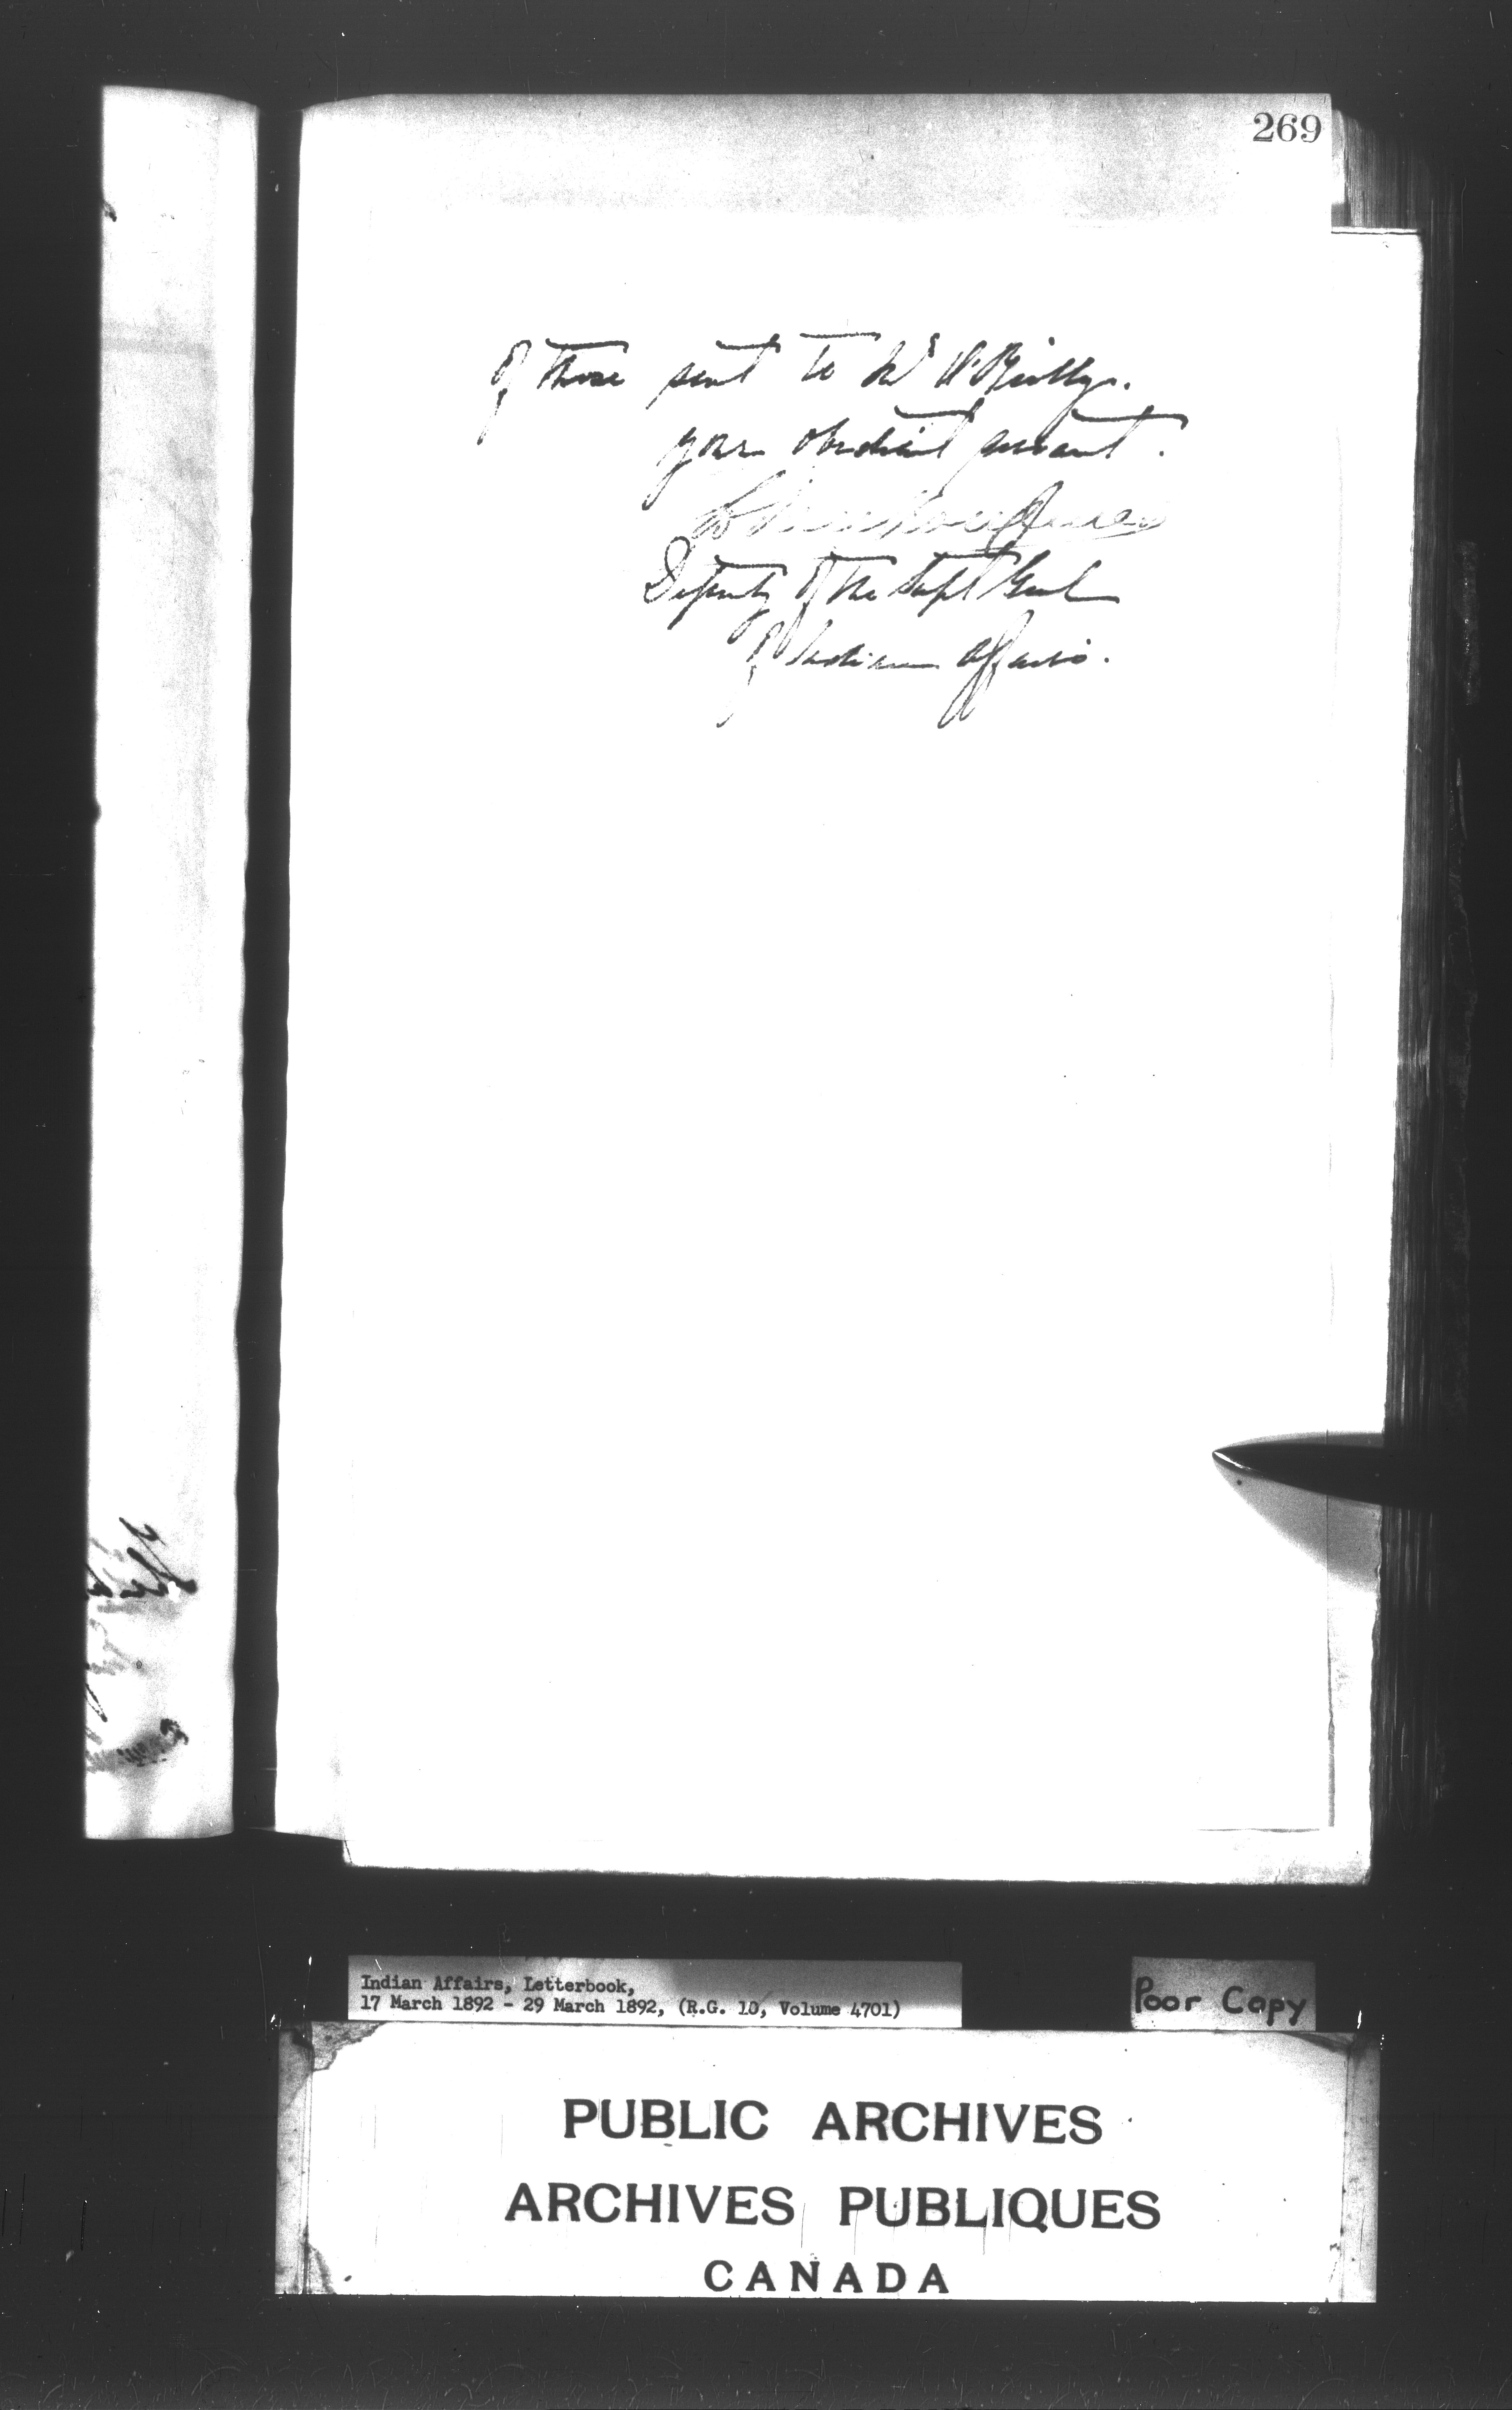 269
of those sent to Mr O'Reilly.
your obedient servant.
L Vankoughnet
Deputy of the Supt Genl
of Indian Affairs.
Indian Affairs, Letterbook,
17 March 1892 - 29 March 1892, (R.G. 10, Volume 4701)
Poor Copy
PUBLIC ARCHIVES
ARCHIVES PUBLIQUES
CANADA